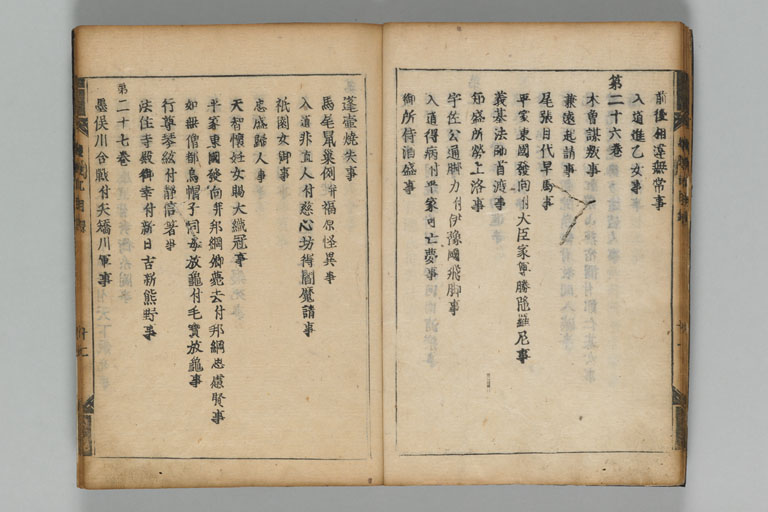 前後相違無常事
入道進乙女事
第二十六巻
木曽謀叛事
兼遠起請事
尾張目代早馬事
平家東國發向付大臣家尊勝陀羅尼事
義基法師首渡事
知盛所勞上洛事
宇佐公通脚力付伊豫國飛脚事
入道得病付平家可亡夢事
御所侍酒盛事
蓬壺焼失事
馬尾鼠巣例并福原怪異事
入道非直人付慈心坊得閻魔請事
祇園女御事
忠盛帰人事
天智懐妊女賜大織冠事
平家東國發向并邦綱卿薨去付邦綱思慮賢事
如無僧都烏帽子同母放龜付毛寶放龜事
行尊琴絃付静信箸事
法住寺殿御幸付新日吉新熊野事
第二十七巻
墨俣川合戰付矢矯川軍事